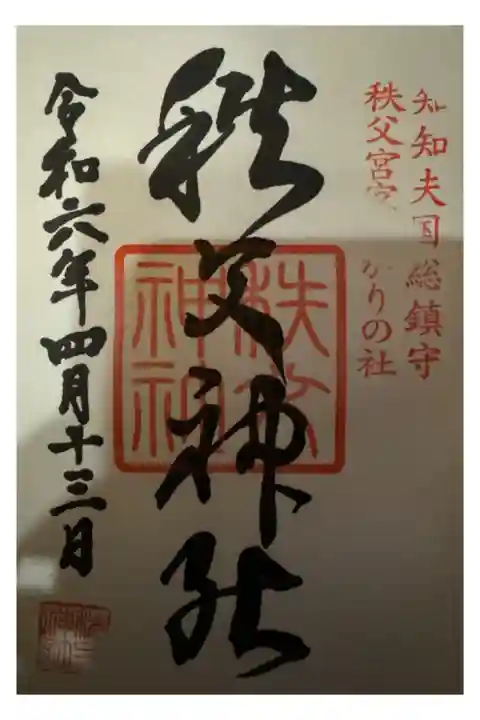 知知夫国総鎮守
秩父宮家ゆかりの社
秩父神社
秩父神社
令和六年四月十三日